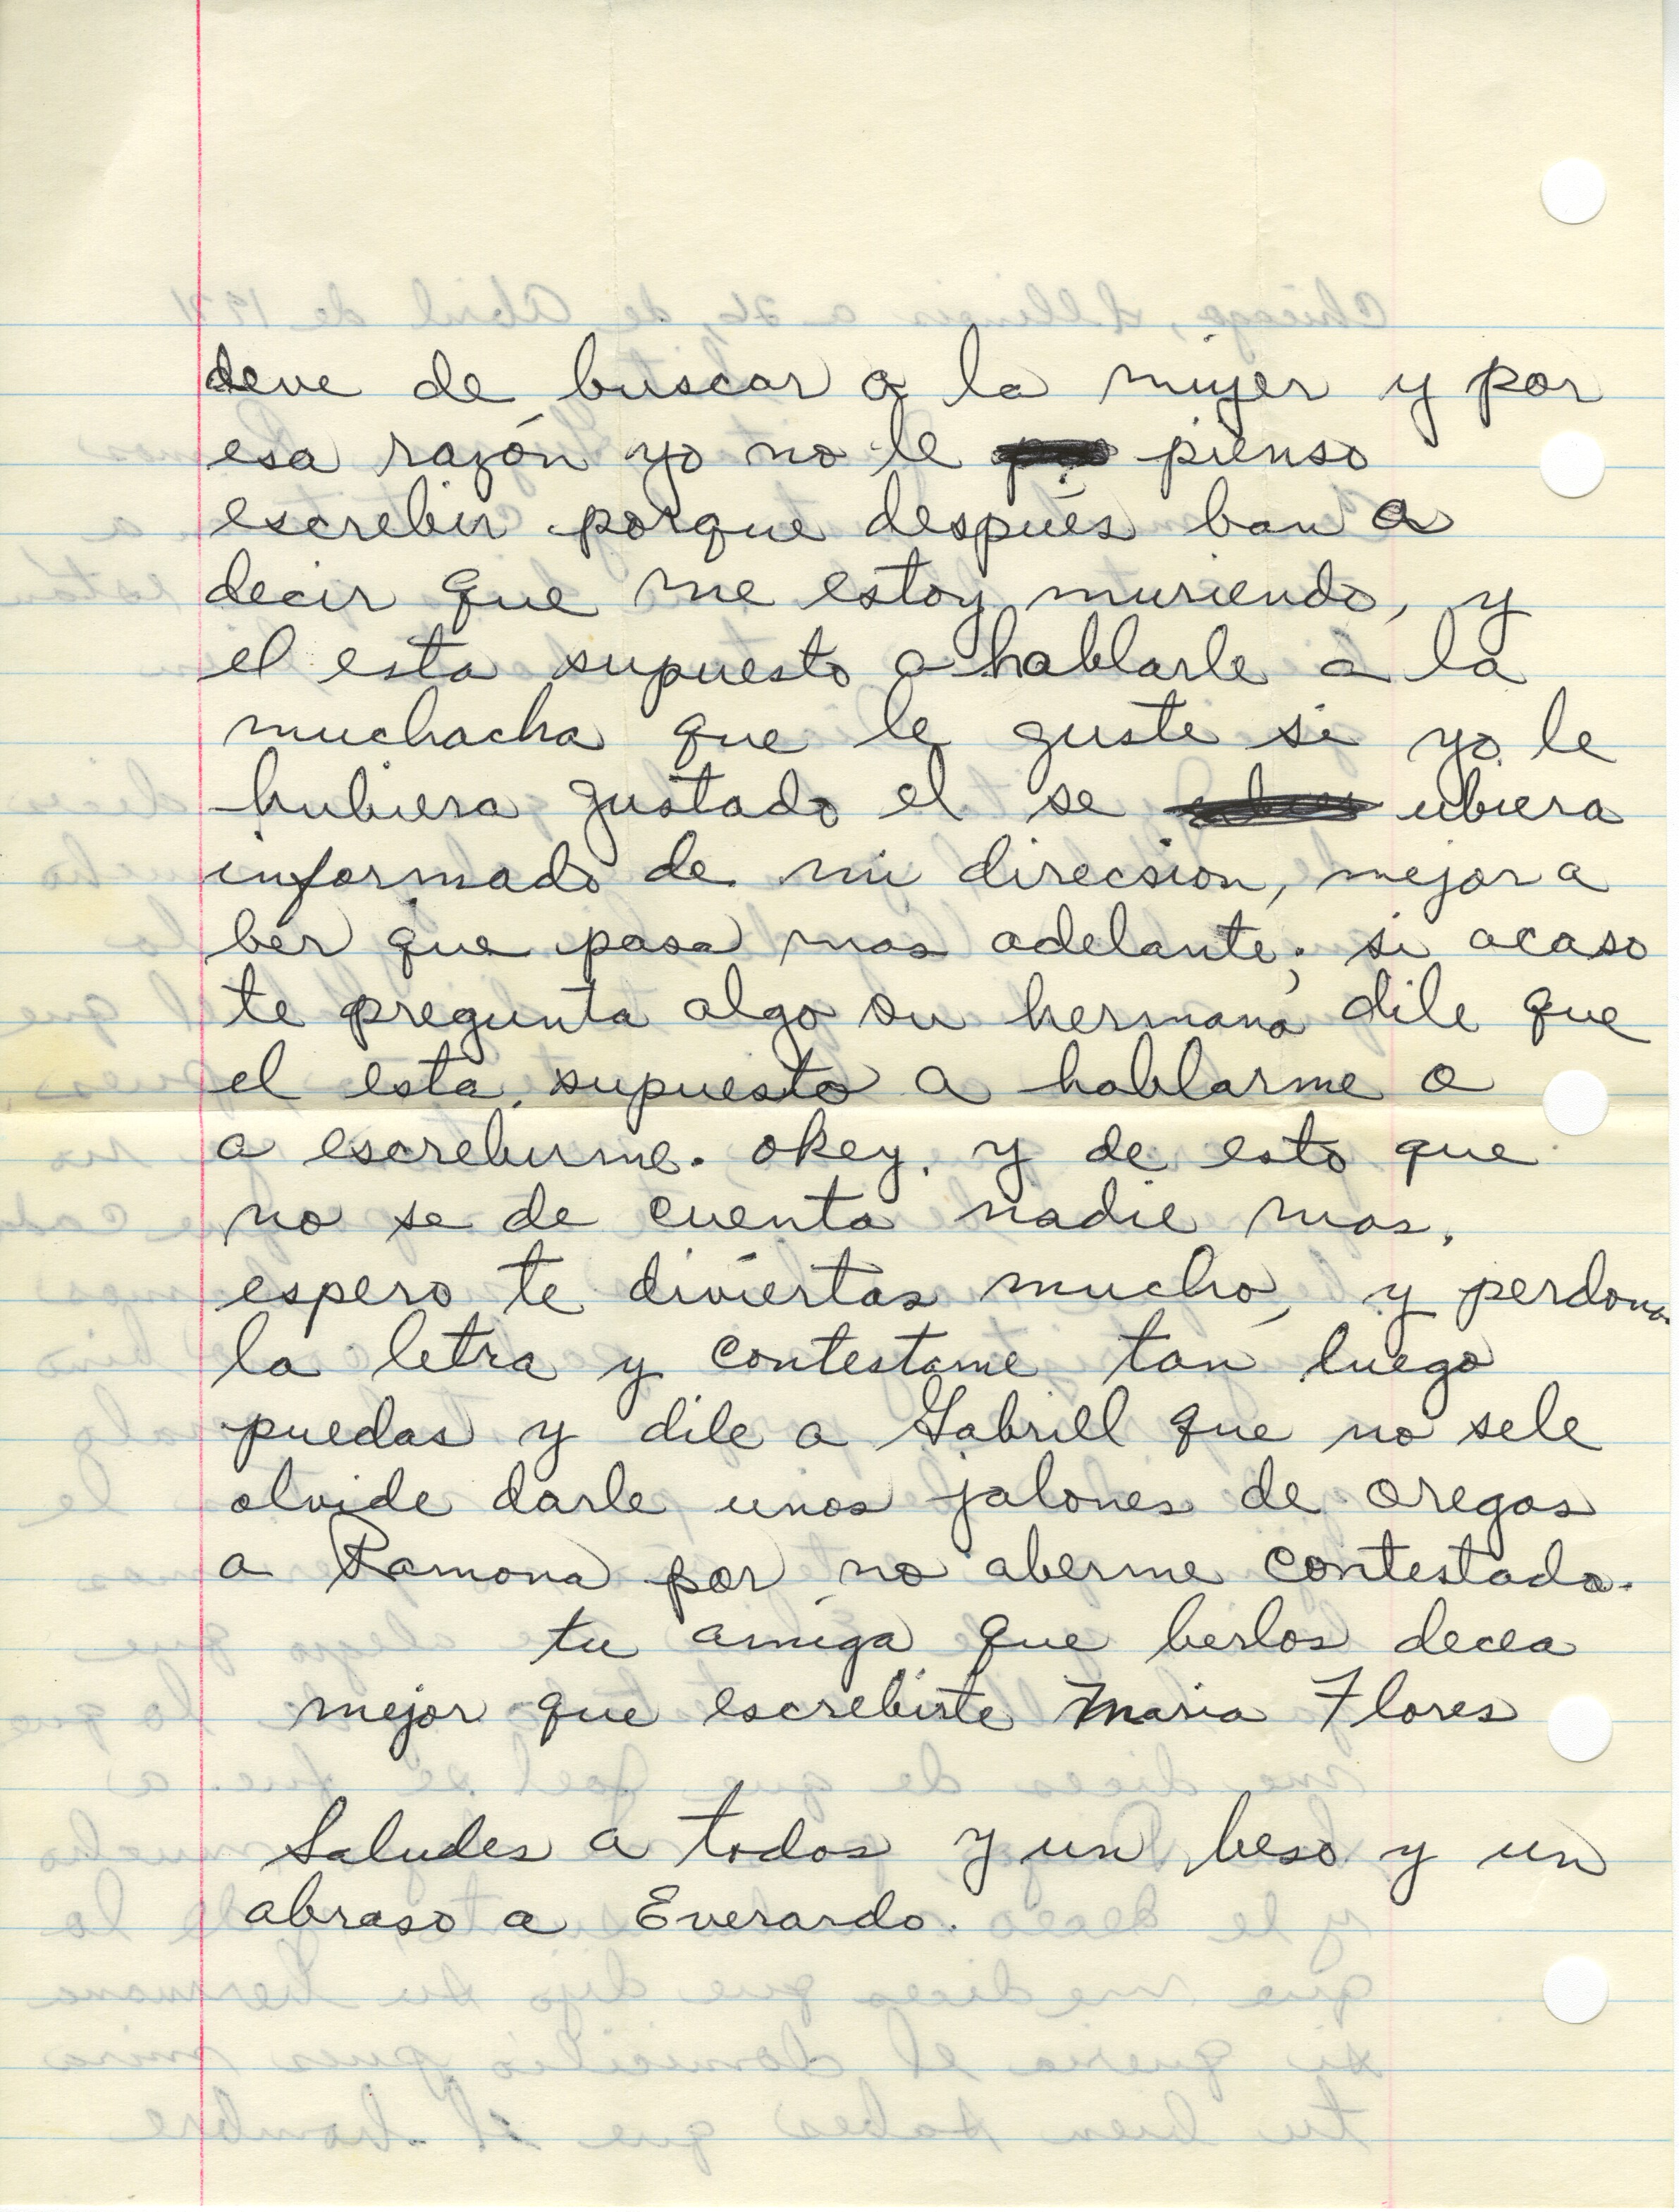 deve de buscar a la mujer y por
esa razón yo no le pienso
escrebir porque después ban a
decir que me estoy muriendo, y
el esta supuesto a hablarle a la
muchacha que le guste si yo le
hubiera gustado el se ubiera
informado de mi direcsion, mejor a
ber que pasa mas adelante; si acaso
te pregunta algo su hermana dile que
el esta supuesto a hablarme o
a escrebirme. okey. y de esto que
no se de cuenta nadie mas.
espero te diviertas mucho, y perdona
la letra y contestame tan luego
puedas y dile a Gabriel que no sele
olvide darle unos jalones de oregas
a Ramona por no aberme contestado.
tu amiga que berlos decea
mejor que escrebirte Maria Flores
Saludes a todos y un beso y un
abraso a Everardo.